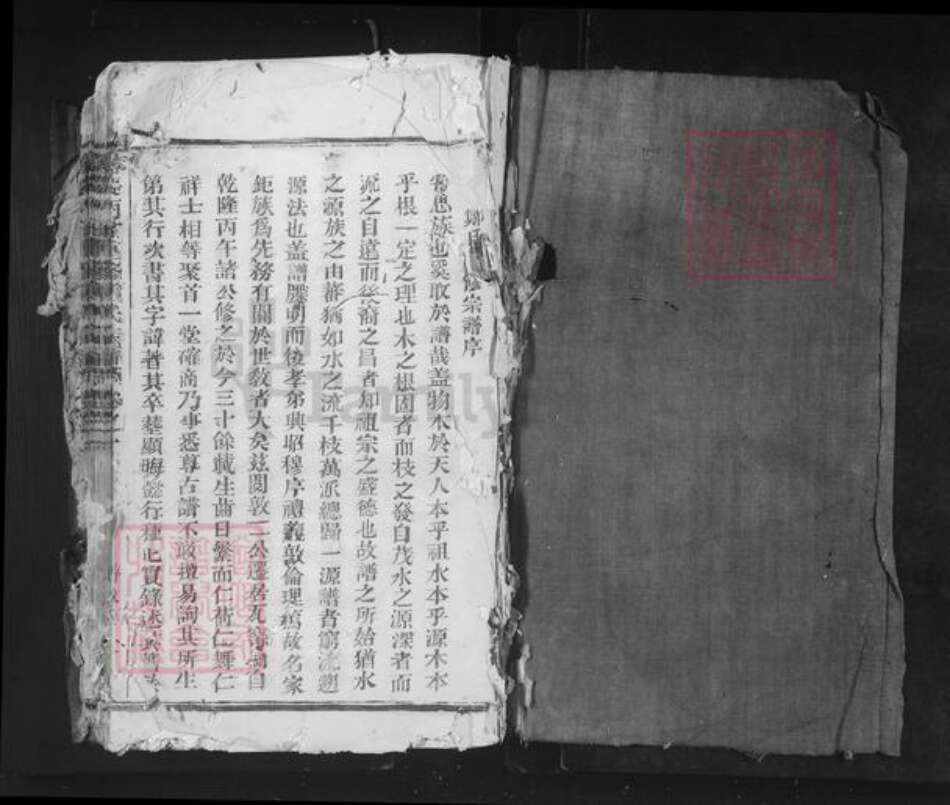 修宗譜序
思族也奚取於譜哉蓋物本於天人本乎祖水本乎源木本
乎根一定之理也木之根固者而枝之發自茂水之源深者而
流之自遠而後裔之昌者知祖宗之盛德也故譜之所始猶水
之源族之由蕃猶如水之流千枝萬派總歸一源譜者窮流遡
源法也蓋譜牒明而後孝弟興昭穆序禮義敦倫理篤故名家
鉅族爲先務有關於世敎者大矣茲閱敦二公遷居瓦
自
乾隆丙午諸公修之於今三十餘載生齒日繁而仁荷仁舞仁
祥士相等聚首一堂確商乃事悉尊古譜不敢擅易詢其所生
第其行次書其字諱著其卒塟顯晦懿行種七實錄